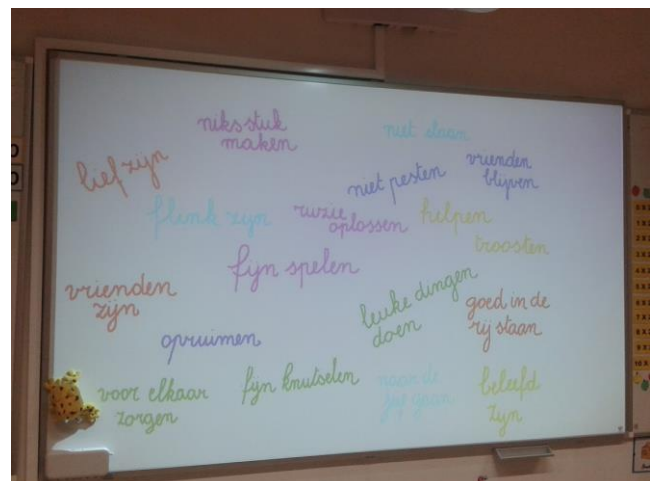 niks stuk
maken
niet slaan
lief zijn
niet pesten
vrienden
blijven
flink zijn
ruzie
oplossen
helpen
troosten
fijn spelen
vrienden
zijn
leuke dingen
doen
goed in de
rij staan
opruimen
voor elkaar
zorgen
fijn knutselen
naar de
gaan
beleefd
zijn